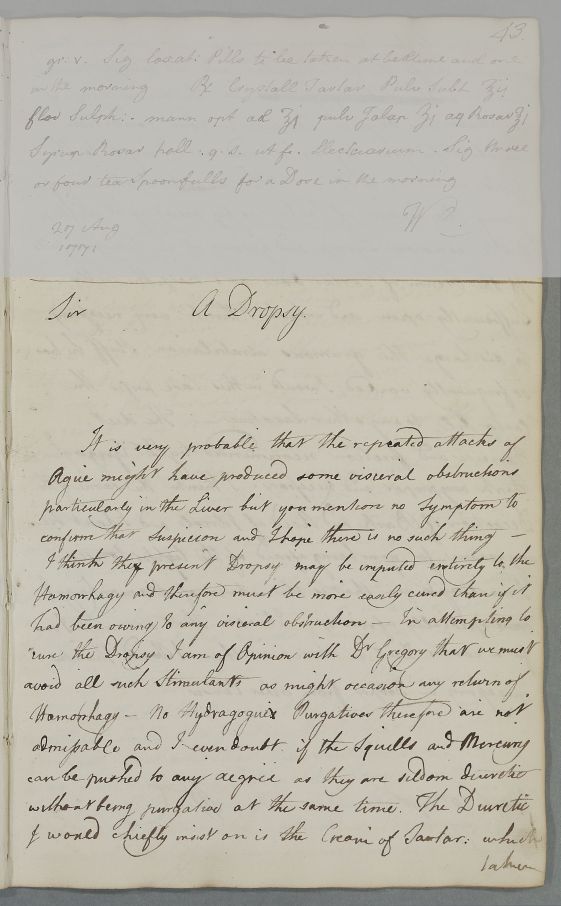 43.
gr. v. Sig laxat: Pills to be taken at bedtime and one
in the morning ℞ Crystall Tartar Pulv Subt ʒij
flor Sulph: mann opt ad ʒj pulv Jalap ʒj aq Rosar ʒj
Syrup Rosar pall. q. s. ut f. Electuarium. Sig three
or four tea Spoonfulls for a Dose in the morning
W C.
27 Aug
1771
Sir A Dropsy.
It is very probable that the repeated attacks of
Ague might have produced some visceral obstructions
particularly in the Liver but you mention no Symptom to
confirm that Suspicion and I hope there is no such thing —
I think the present Dropsy may be imputed entirely to the
Hæmorrhagy and therefore must be more easily cured than if it
had been owing to any visceral obstruction — In attempting to
cure the Dropsy I am of Opinion with Dr Gregory that we must
avoid all such Stimulants as might occasion any return of
Hæmorrhagy — No Hydragogue Purgatives therefore are not
admissable and I even doubt if the Squills and Mercury
can be pushed to any degree as they are seldom diuretic
without being purgative at the same time. The Diuretic
I would chiefly insist on is the Cream of Tartar: which
taken